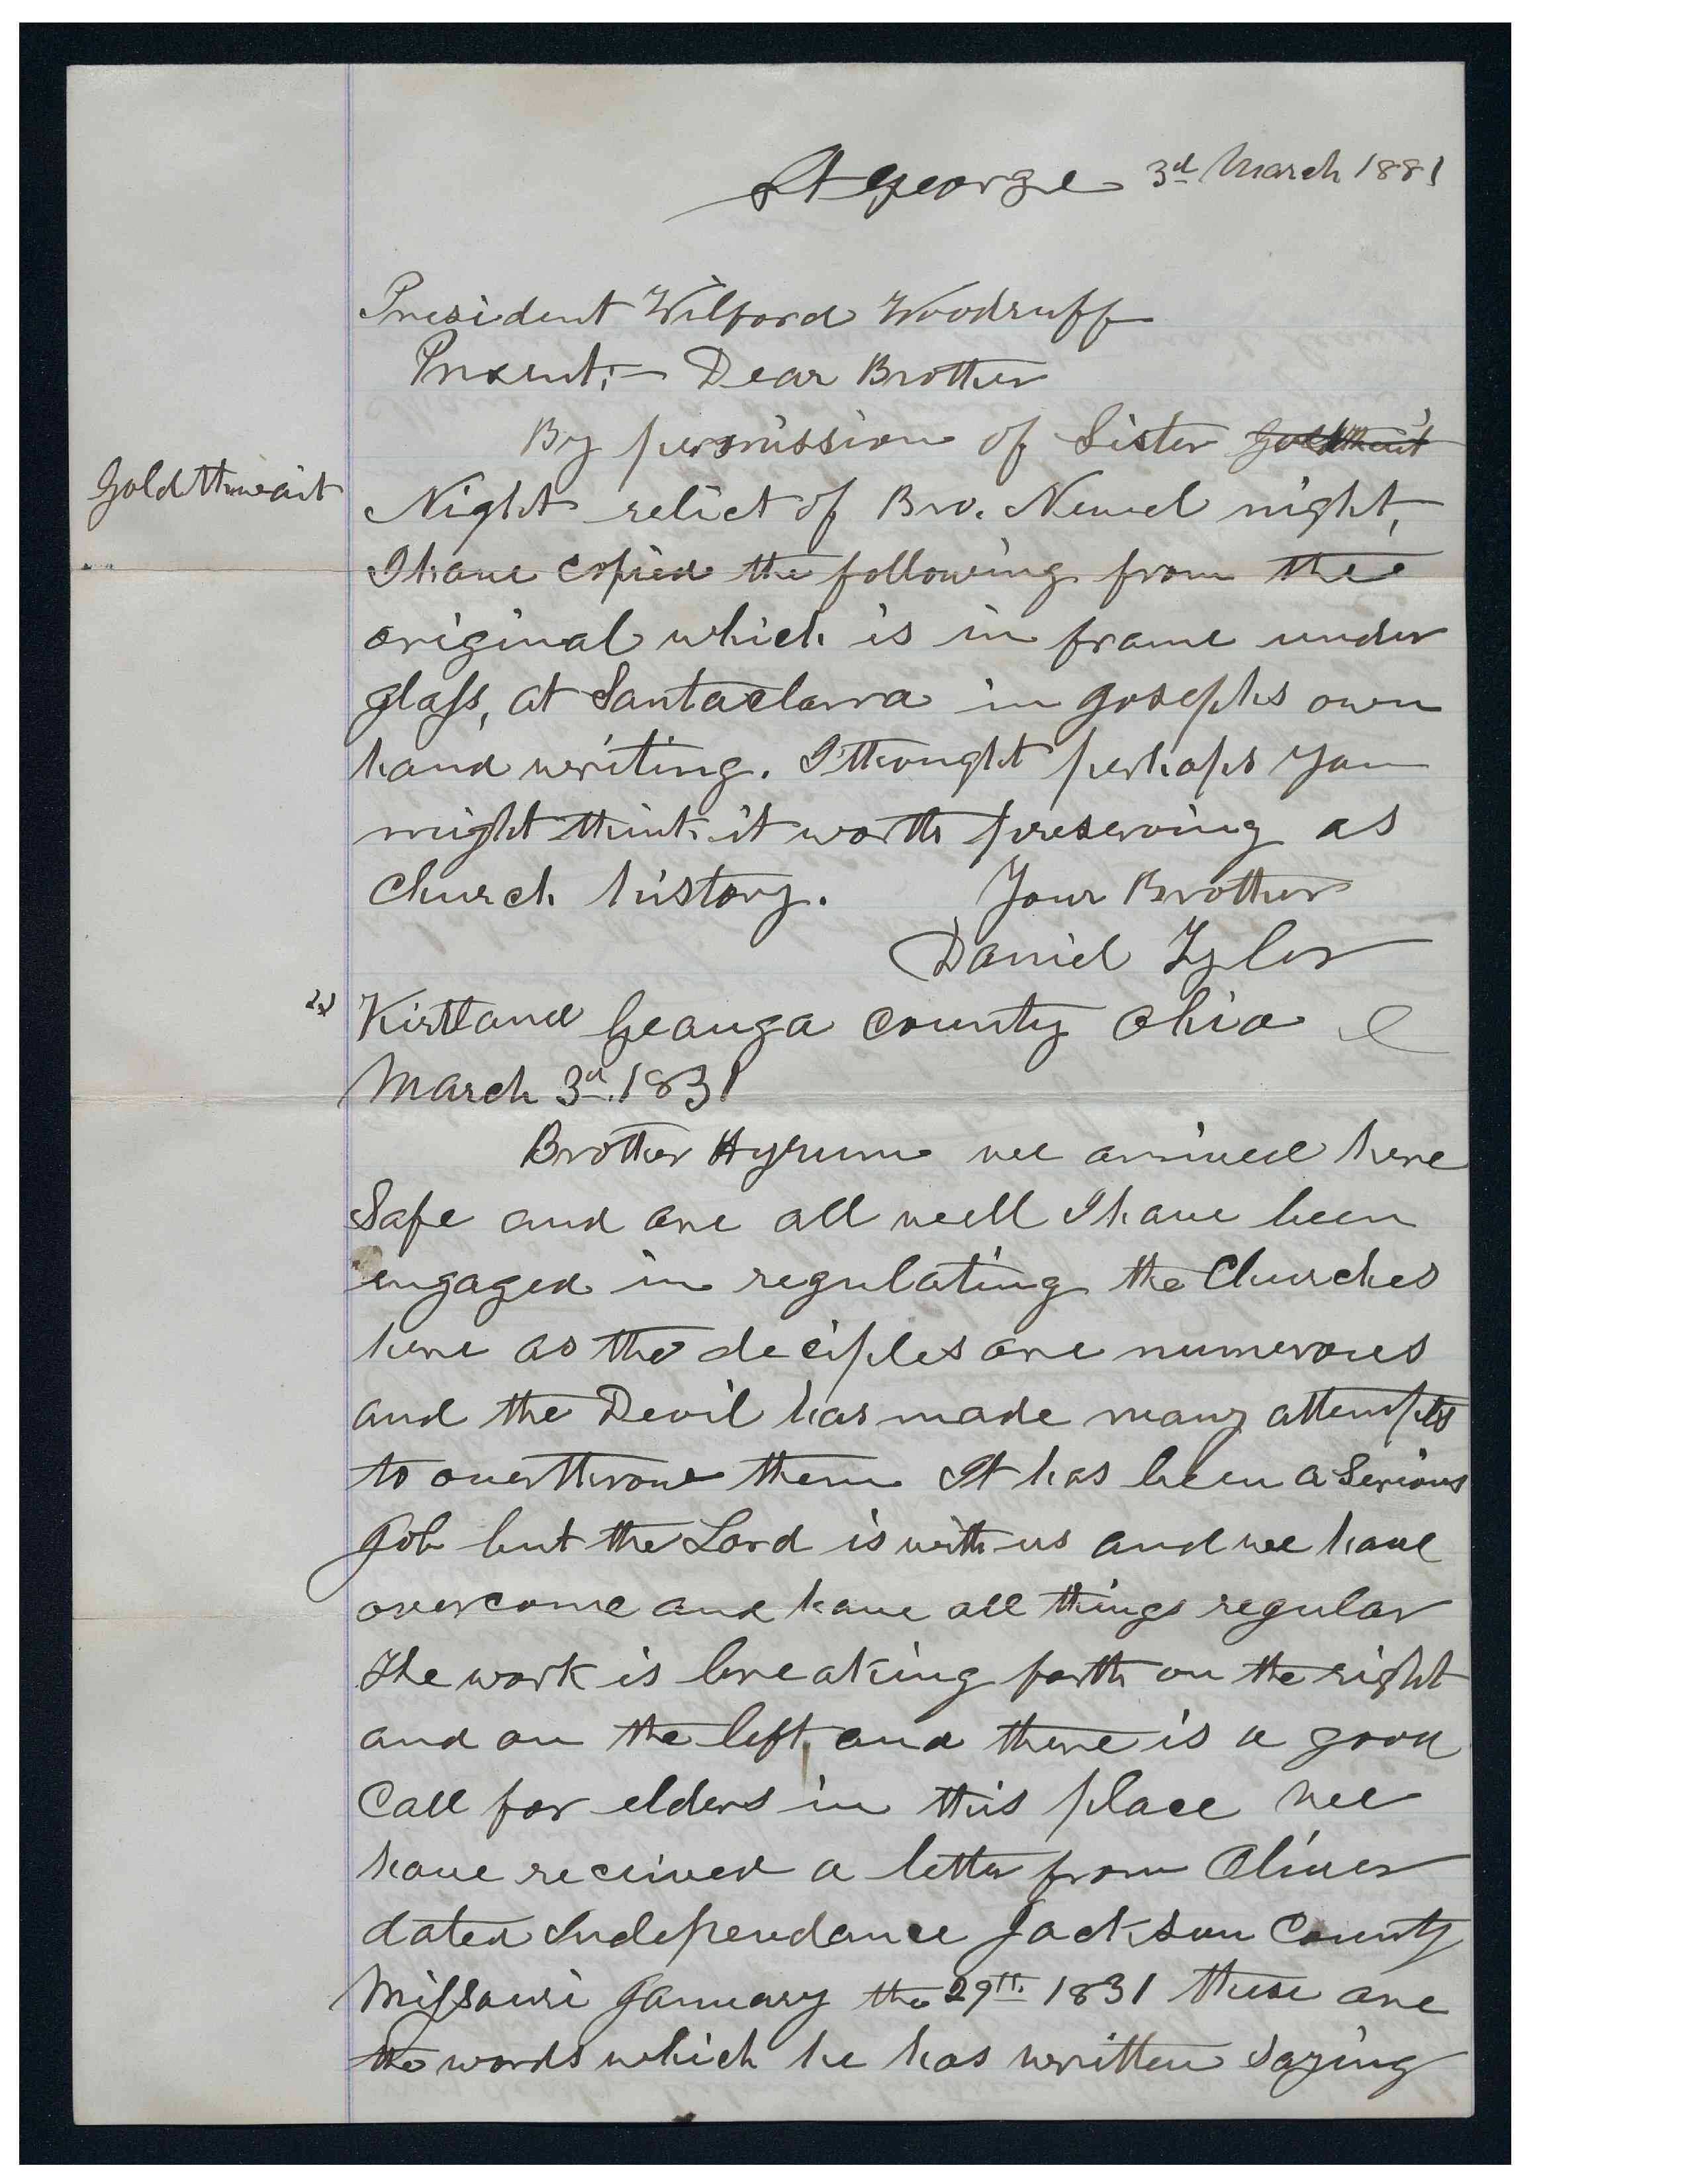 St George 3d March 1881
President Wilford Woodruff
Present:— Dear Brother
By permission of Sister Goldthwait
Goldthwait
Night relict of Bro. Newel night,
I have copied the following from the
original which is in frame under
glass, at Santaclara in Josephs own
hand writing. I thought perhaps you
might think it worth preserving as
Church history. Your Brother
Daniel Tyler
Kirtland Geauga County Ohio
March 3d. 1831
Brother Hyrum we arrived here
Safe and are all well I have been
engaged in regulating the Churches
here as the deciples are numerous
and the Devil has made many attempts
to overthrow them It has been a Serious
Job but the Lord is with us and we have
overcome and have all things regular
The work is breaking forth on the right
and on the left and there is a good
Call for elders in this place we
have received a letter from Oliver
dated Independance Jackson County
Missouri January the 29th 1831 these are
the words which he has written saying